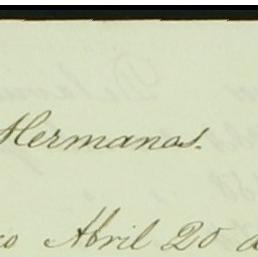 Hermanos.
co Abril 20 d